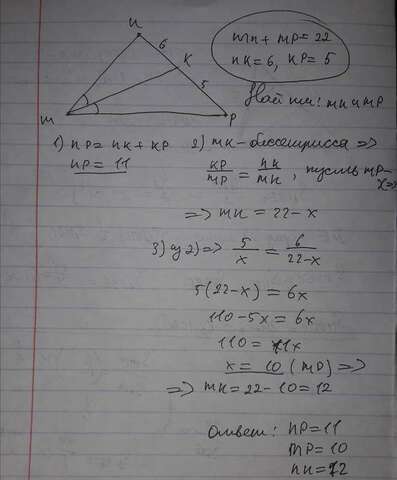 n
6
K
5
m
P
mn + mp = 22
nK = 6, KP = 5
Найти: mn и mp
1) nP = nK + KP
nP = 11
2) mK - биссектрисса =>
KP/mP = nK/mn, пусть mP - x =>
=> mn = 22 - x
3) из 2) => 5/x = 6/22-x
5(22-x) = 6x
110 - 5x = 6x
110 = 11x
x = 10 (mP) =>
=> mn = 22 - 10 = 12
Ответ: nP = 11
mP = 10
nn = 12